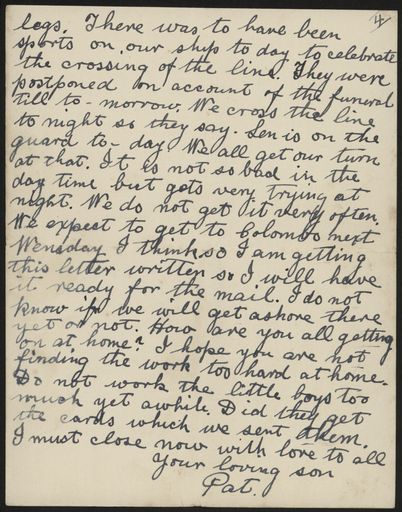 4
legs. There was to have been
sports on our ship to day to celebrate
the crossing of the line. They were
postponed on account of the funeral
till to-morrow. We cross the line
to night so they say. Len is on the
guard to-day We all get our turn
at that. It is not so bad in the
day time but gets very trying at
night. We do not get it very often.
We expect to get to Colombo next
Wensday I think so I am gitting
this letter written so I will have
it ready for the mail. I do not
know if we will get ashore there
yet or not. How are you all getting
on at home? I hope you are not
finding the work too hard at home.
Do not work the little boys too
much yet awhile. Did they get
the cards which we sent them.
I must close now with love to all
Your loving son
Pat.